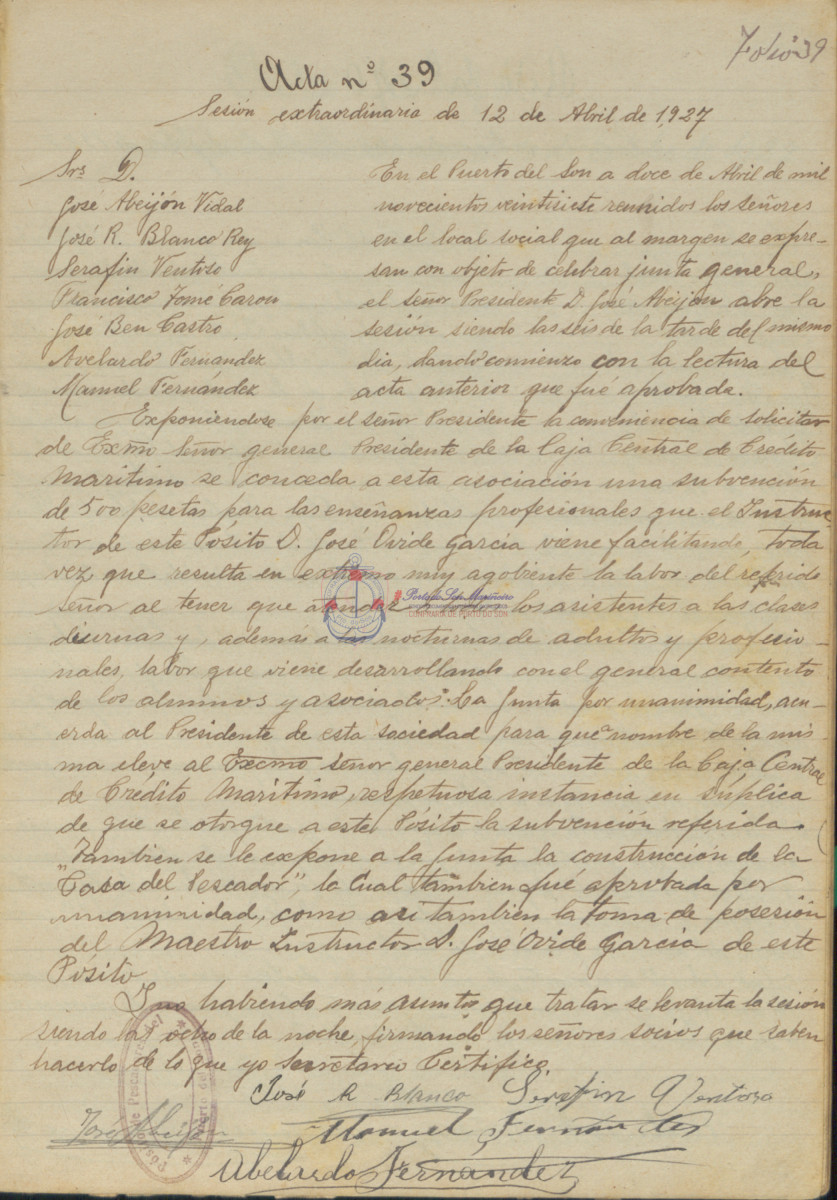 Folio 39
Acta nº 39
Sesión extraordinaria de 12 de Abril de 1,927
Srs D.
José Abeijón Vidal
José R. Blanco Rey
Serafin Ventoso
Francisco Tomé Carou
José Ben Castro
Avelardo Fernandez
Manuel Fernández
En el Puerto del Son a doce de Abril de mil
novecientos veintisiete reunidos los señores
en el local social que al margen se expre-
san con objeto de celebrar junta general,
el señor Presidente D. José Abeijon abre la
sesión siendo las seis de la tarde del mismo
dia, dando comienzo con la lectura del
acta anterior que fué aprobada.
Exponiendose por el señor Presidente la conveniencia de solicitar
de Exmo señor general Presidente de la Caja Central de Credito
Maritimo se conceda a esta asociación una subvención
de 500 pesetas para las enseñanzas profesionales que el Instruc-
tor de este Pósito D. José Ovide Garcia viene facilitando, toda
vez que resulta en extremo muy agobiente la labor del referido
señor al tener que atender a todos los asistentes a las clases
diurnas y, además a las nocturnas de adultos y profesio-
nales, labor que viene desarrollando con el general contento
de los alumnos y asociados. La Junta por unanimidad, acu-
erda al Presidente de esta sociedad para que nombre de la mis-
ma eleve al Excmo señor general Presidente de la Caja Central
de Crédito Maritimo, respetuosa instancia en suplica
de que se otorgue a este Pósito la subvención referida.
Tambien se le expone a la Junta la construcción de la
"Casa del Pescador", la cual tambien fué aprobada por
unanimidad, como asi tambien la toma de posesión
del Maestro Instructor D. José Ovide Garcia de este
Pósito
Y no habiendo más asuntos que tratar se levanta la sesión
siendo las ocho de la noche, firmando los señores socios que saben
hacerlo de lo que yo Secretario Certifico.
José R Blanco Serafin Ventoso
José Abeijon Manuel Fernandez
Abelardo Fernandez